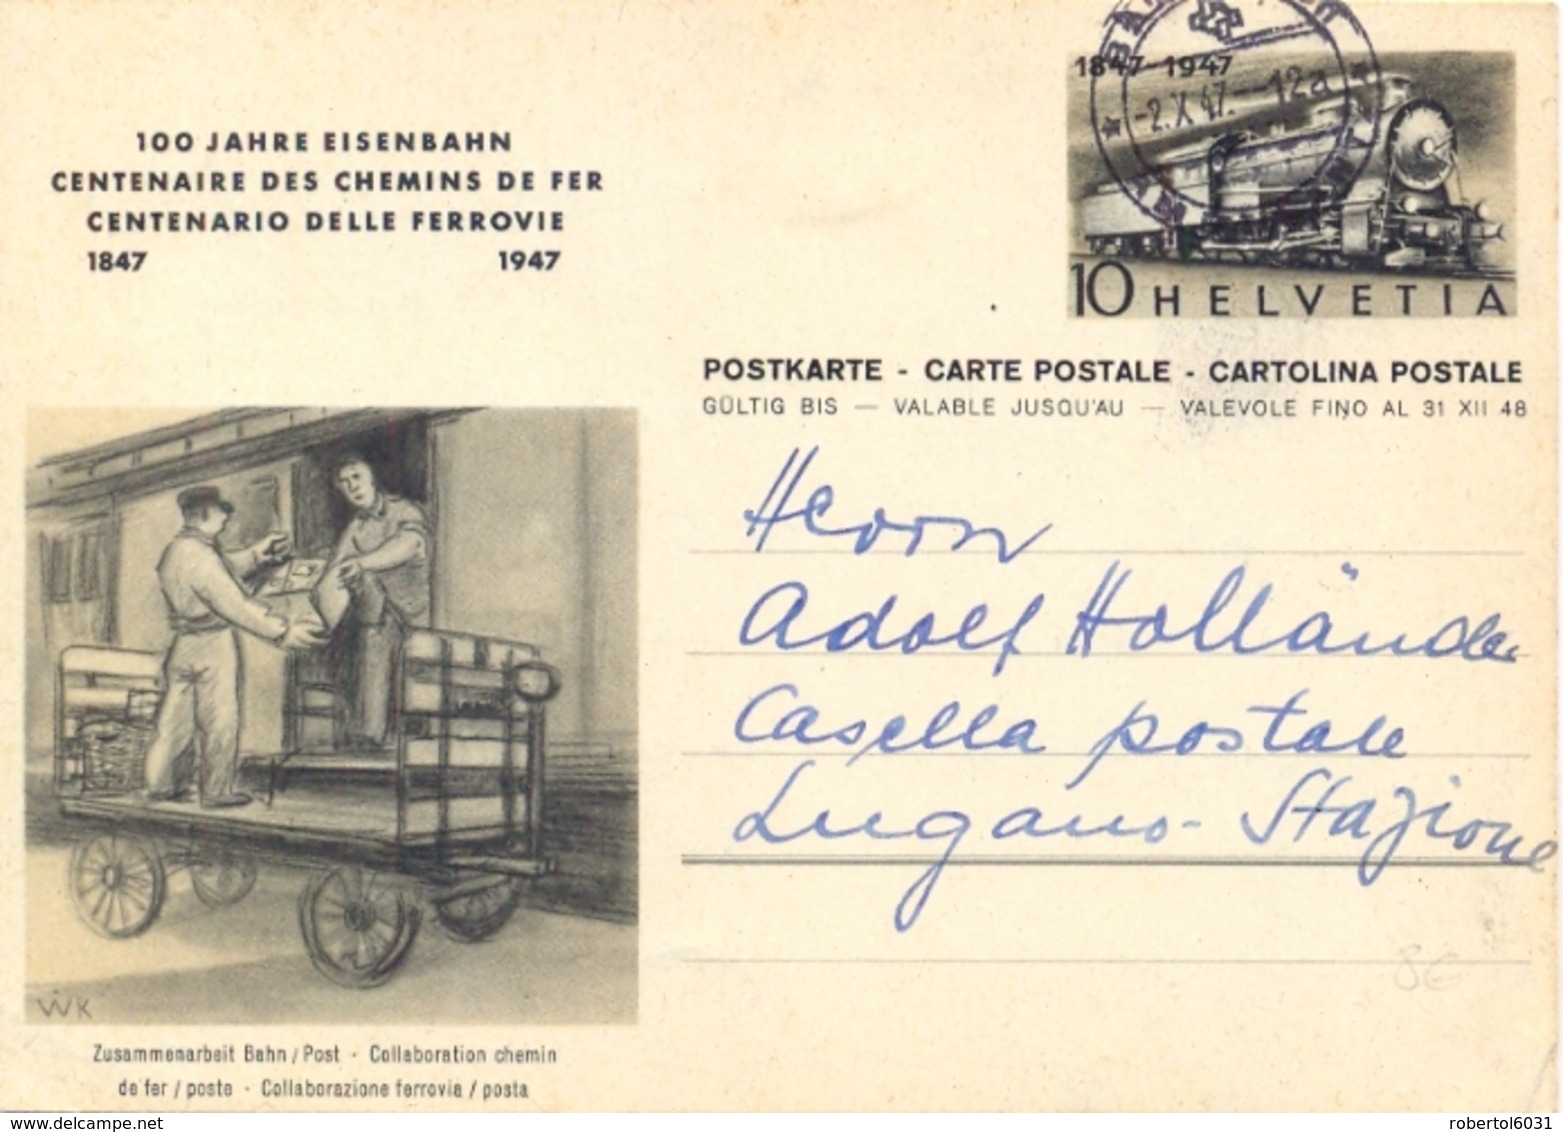 100 JAHRE EISENBAHN
CENTENAIRE DES CHEMINS DE FER
CENTENARIO DELLE FERROVIE
1847 1947
1847-1947
-2.X.47.-12a
10 HELVETIA
POSTKARTE - CARTE POSTALE - CARTOLINA POSTALE
GÜLTIG BIS — VALABLE JUSQU'AU — VALEVOLE FINO AL 31 XII 48
Herrn
Adolf Holländer
Casella postale
Lugano - Stazione
8€
WK
Zusammenarbeit Bahn / Post - Collaboration chemin
de fer / poste - Collaborazione ferrovia / posta
www.delcampe.net
robertol6031